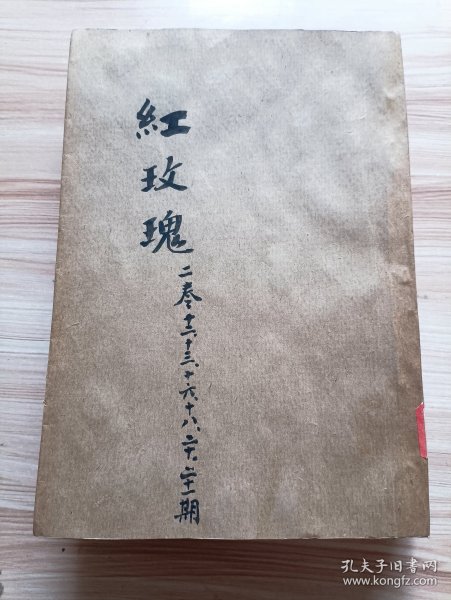 紅玫瑰
二卷十二、十三、十六、十八、二十、二十一期
孔夫子旧书网
www.kongfz.com